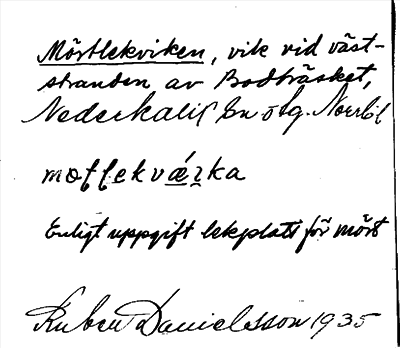 Mörtlekviken, vik vid väst-
stranden av Bodträsket,
Nederkalix sn ö tg. Norrb l
Enligt uppgift lekplats för mört
Ruben Danielsson 1935